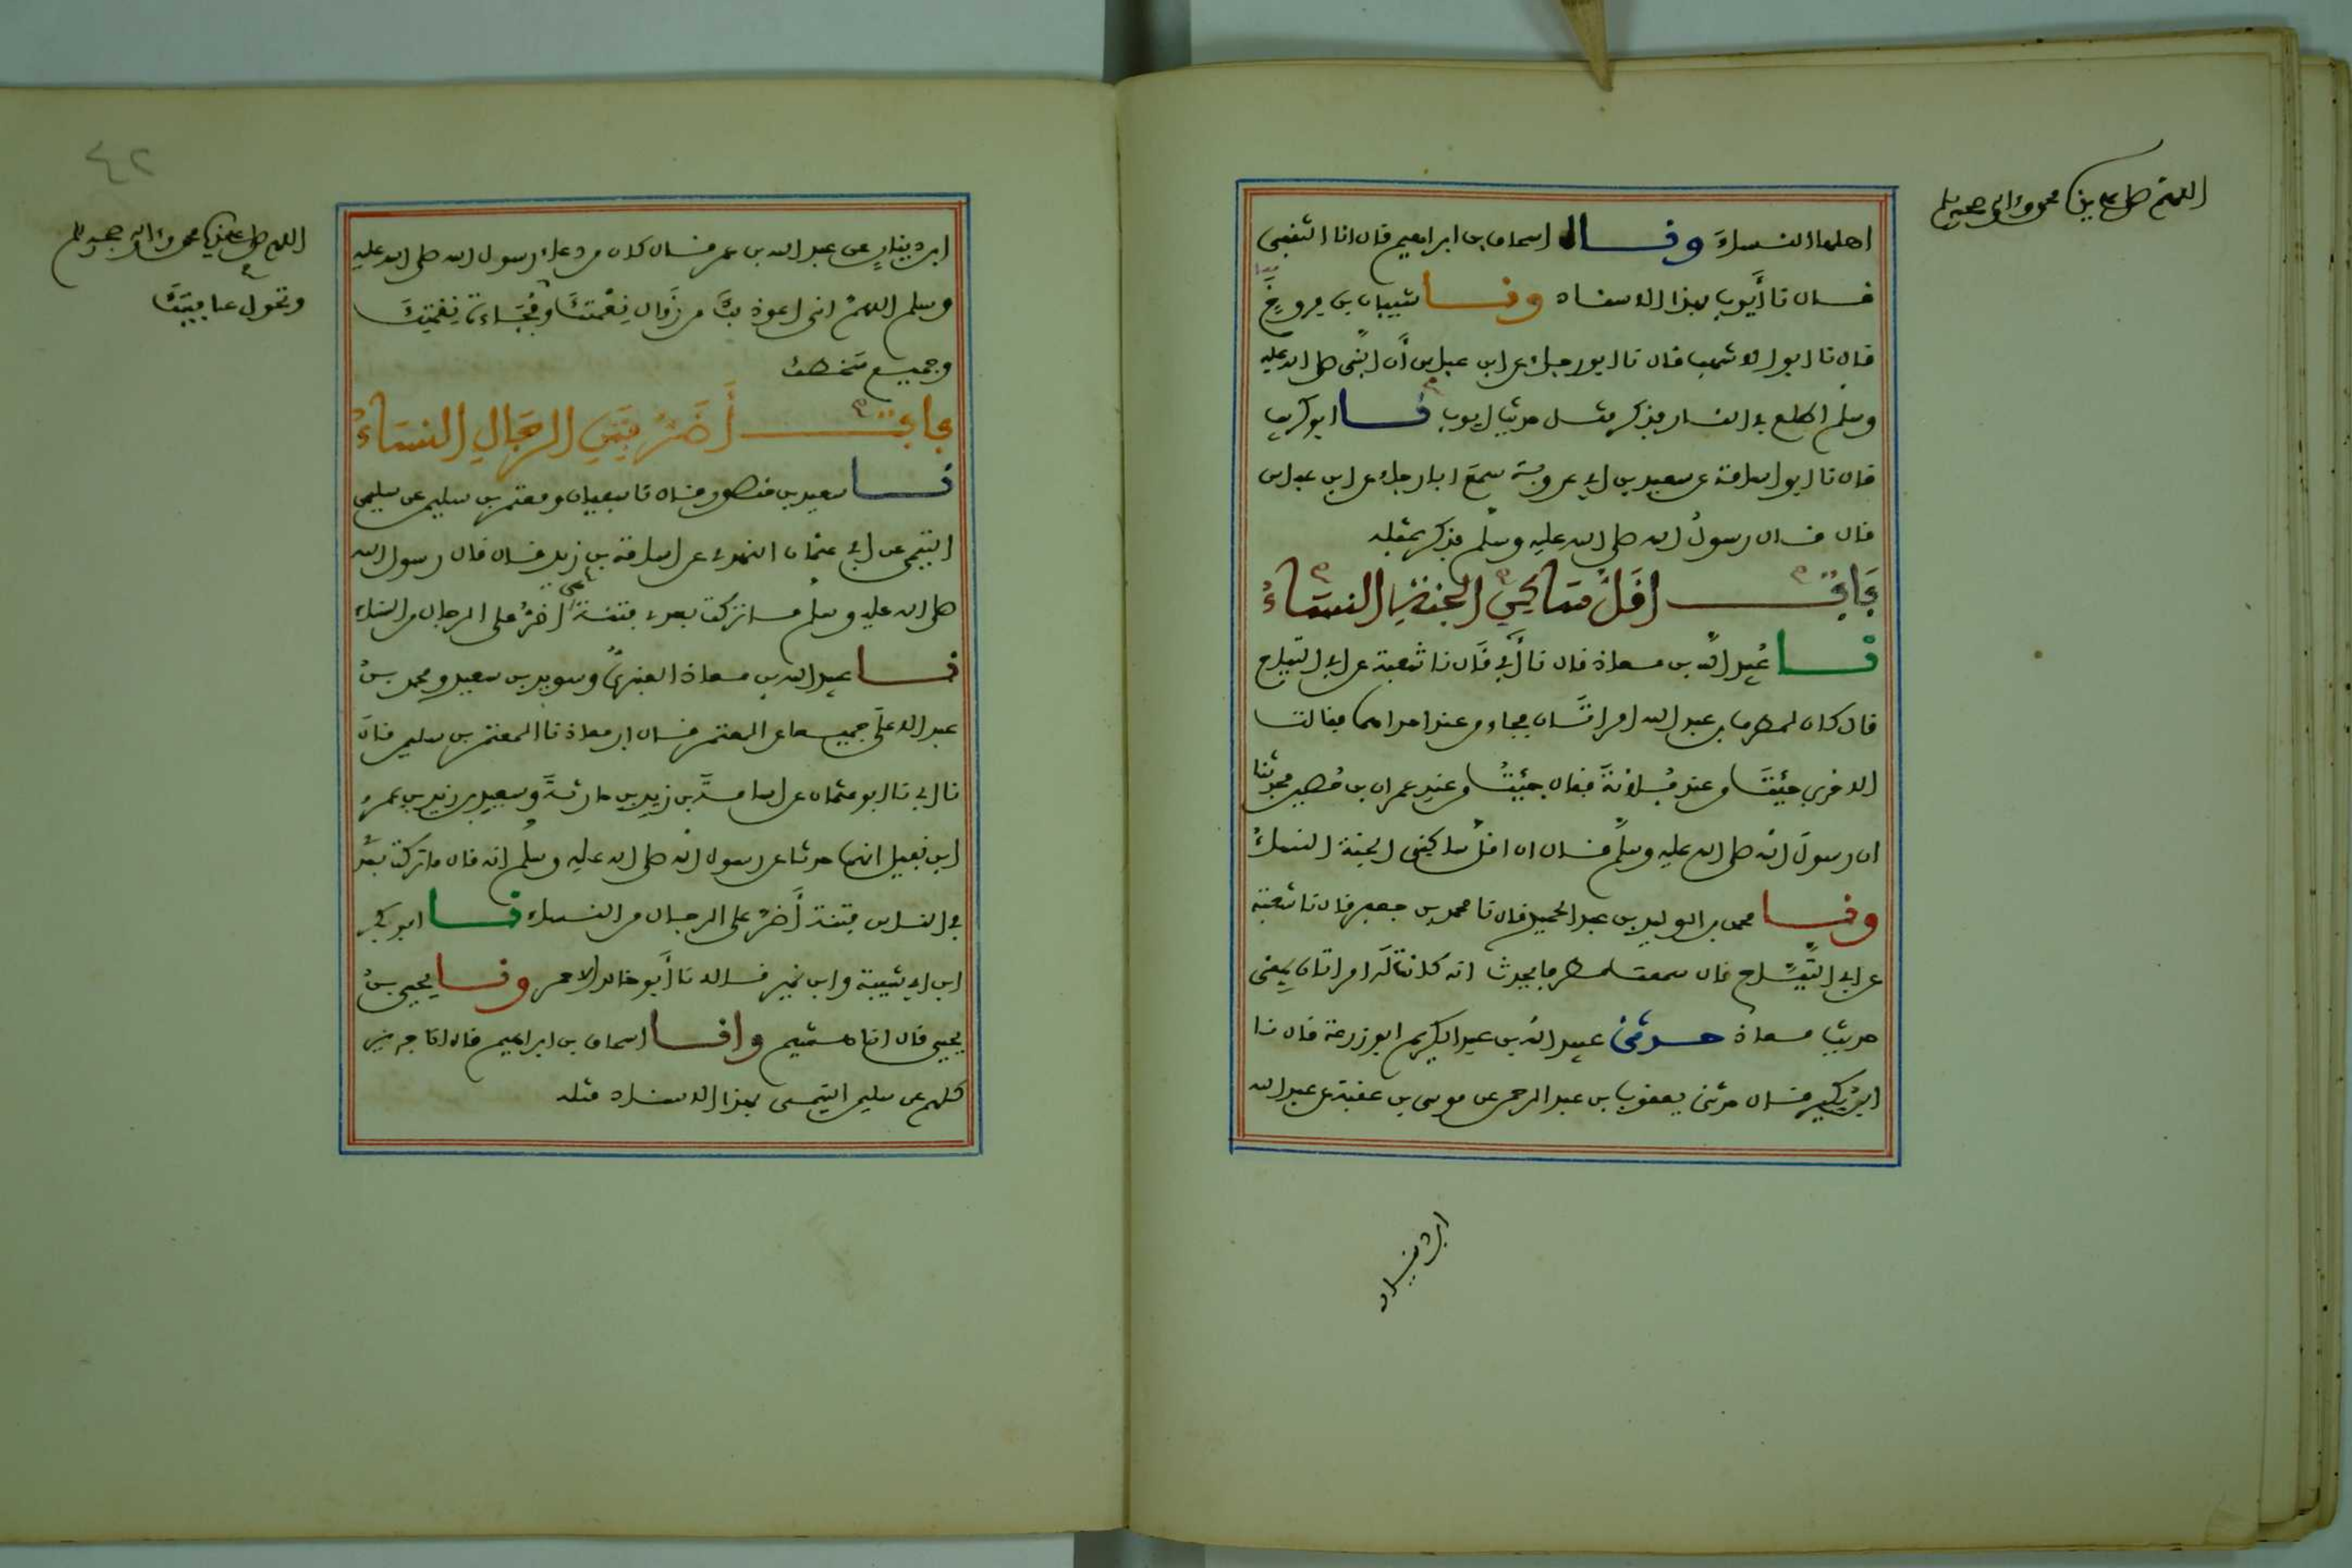 اللهم صل على سيدنا محمد وءاله وصحبه وسلم
اهلها النساء ونا اسحاق بن ابراهيم قال انا الثقفي
قال نا أيوب بهذا الاسناد ونا شيبان بن فروخ
قال نا ابو الاشهب قال نا ابو رجاء عن ابن عباس أن النبي صلى الله عليه
وسلم اطلع في النار فذكر مثل حديث ايوب نا ابو كريب
قال نا ابو اسامة عن سعيد بن ابي عروبة سمع ابا رجاء عن ابن عباس
قال قال رسول الله صلى الله عليه وسلم فذكر بمثله
باب اقل ساكني الجنة النساء
نا عبيد الله بن معاذ قال نا أبي قال نا شعبة عن ابي التياح
قال كان لمطرف بن عبد الله امراتان فجاء من عند احداهما فقالت
الاخرى جئت من عند فلانة فقال جئت من عند عمران بن حصين فحدثنا
ان رسول الله صلى الله عليه وسلم قال ان اقل ساكني الجنة النساء
ونا محمد بن الوليد بن عبد الحميد قال نا محمد بن جعفر قال نا شعبة
عن ابي التياح قال سمعت مطرفا يحدث انه كانت له امراتان بمعنى
حديث معاذ حدثني عبيد الله بن عبد الكريم ابو زرعة قال نا
ابن بكير قال حدثني يعقوب بن عبد الرحمن عن موسى بن عقبة عن عبد الله
ابن دينار
٤٢
اللهم صل على سيدنا محمد وءاله وصحبه وسلم
وتحول عافيتك
ابن دينار عن عبد الله بن عمر قال كان من دعاء رسول الله صلى الله عليه
وسلم اللهم اني اعوذ بك من زوال نعمتك وفجاءة نقمتك
وجميع سخطك
باب أضر فتن الرجال النساء
نا سعيد بن منصور قال نا سفيان ومعتمر بن سليمن عن سليمن
التيمي عن ابي عثمان النهدي عن اسامة بن زيد قال قال رسول الله
صلى الله عليه وسلم ما تركت بعدي فتنة هي أضر على الرجال من النساء
نا عبيد الله بن معاذ العنبري وسويد بن سعيد ومحمد بن
عبد الاعلى جميعا عن المعتمر قال ابن معاذ نا المعتمر بن سليمن قال
قال ابي نا ابو عثمان عن اسامة بن زيد بن حارثة وسعيد بن زيد بن عمرو
ابن نفيل انهما حدثا عن رسول الله صلى الله عليه وسلم انه قال ما تركت بعدي
في الناس فتنة أضر على الرجال من النساء نا ابو بكر
ابن ابي شيبة وابن نمير قالا نا أبو خالد الاحمر ونا يحيى بن
يحيى قال انا هشيم وانا اسحاق بن ابراهيم قال انا جرير
كلهم عن سليمن التيمي بهذا الاسناد مثله